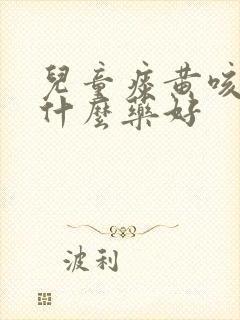 兒童痰黃咳
什麼藥好
波利